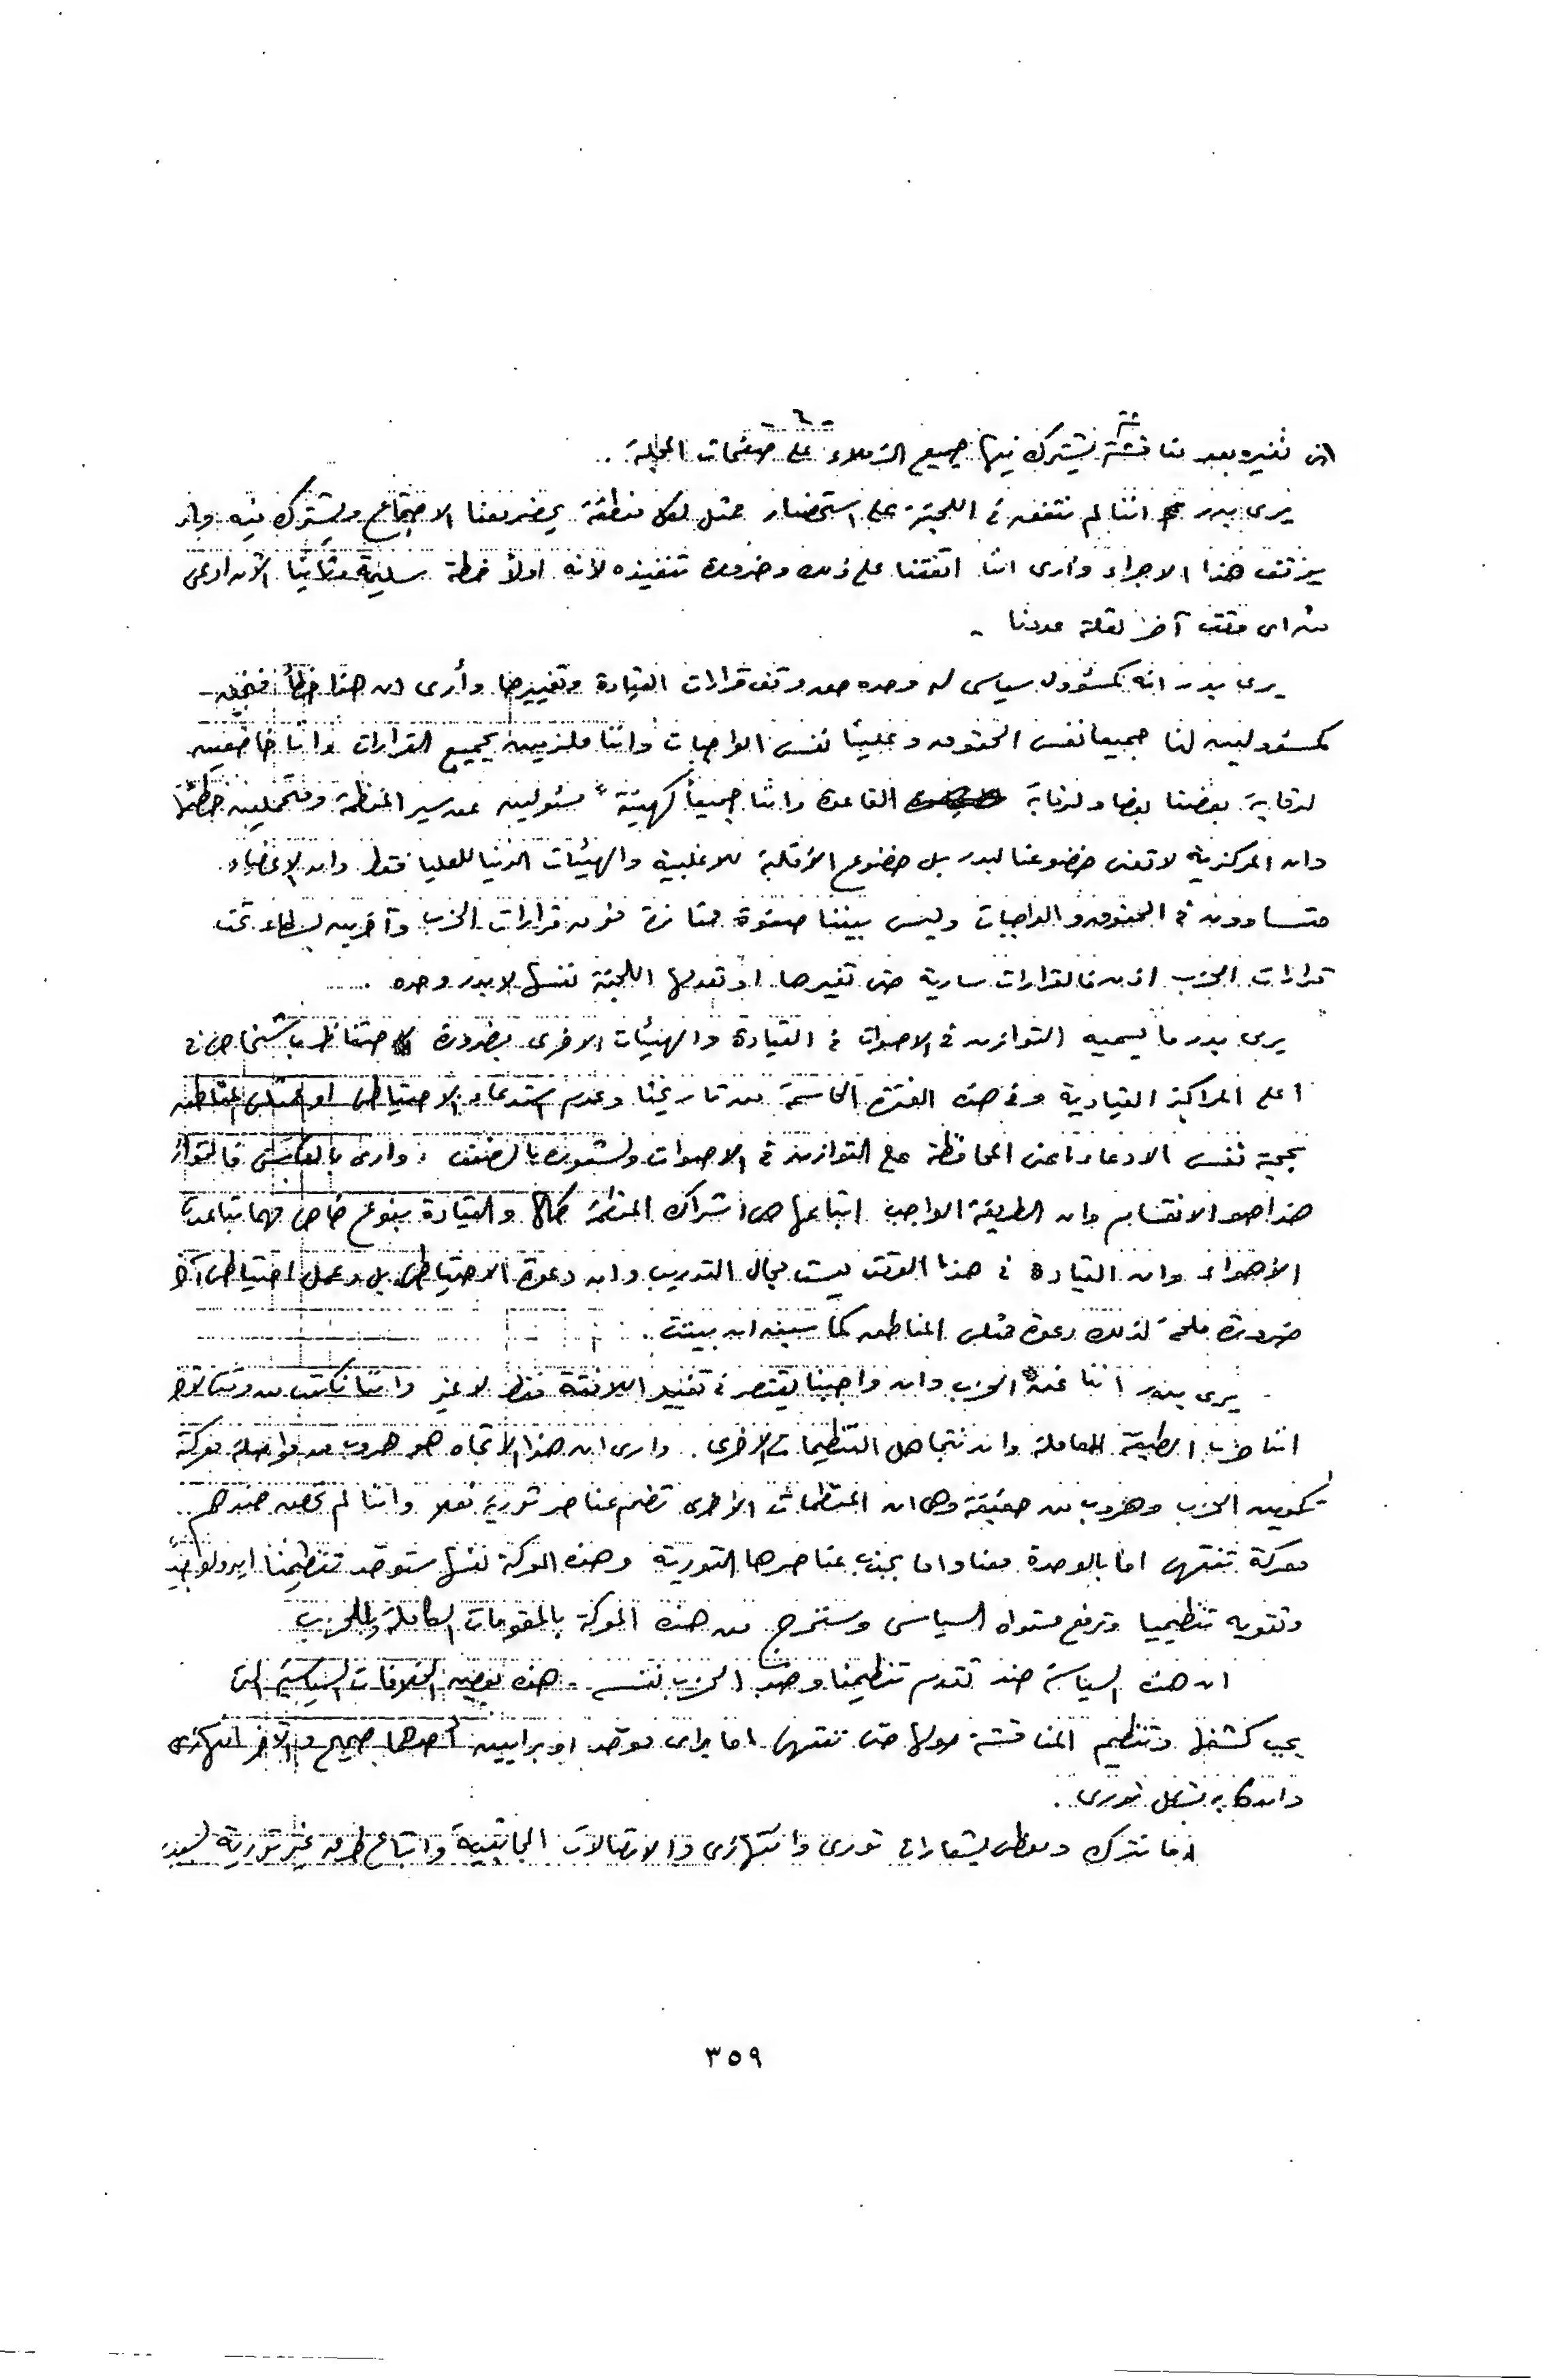 - ٦ -
نغيره بعد مناقشة يشترك فيها جميع الزملاء على صفحات المجلة .
يرى بدر اننا لم نتفق فى اللجنة على استحضار ممثل لكل منطقة يحضر معنا الاجتماع ويشترك فيه
هذا الاجراء وأرى اننا اتفقنا على ذلك وضرورة تنفيذه لأنه اولاً خطة سليمة وثانيًا لأنه ادعى
من اى وقت آخر لقلة عددنا -
يرى بدر انه كمسئول سياسى له وحده حق وقف قرارات القيادة وتغييرها وأرى ان هذا خطأ فنحن
كمسئولين لنا جميعا نفس الحقوق وعلينا نفس الواجبات واننا ملزمين بجميع القرارات واننا خاضعين
لرقابة بعضنا بعضا ولرقابة القاعدة واننا جميعاً كهيئة مسئولين عن سير المنظمة ومتحملين
وان المركزية لا تعنى خضوعنا لبدر بل خضوع الأقلية للاغلبية والهيئات الدنيا للعليا فقط وان الاعضاء
متساوون فى الحقوق والواجبات وليس بيننا صفوة ممتازة فوق قرارات الحزب وآخرين بسطاء تحت
قرارات الحزب اذن فالقرارات سارية حتى تغيرها او تعدلها اللجنة نفسها لا بدر وحده ......
يرى بدر ما يسميه التوازن فى الاصوات فى القيادة والهيئات الاخرى بضرورة الاحتفاظ باشخاص فى
اعلى المراكز القيادية وفى هذه الفترة الحاسمة من تاريخنا وعدم استدعاء الاحتياطى او ممثلى المناطق
بحجة نفس الادعاء اعنى المحافظة على التوازن فى الاصوات ولشعوره بالضعف ، وارى بالعكس فالتوازن
هذا هو الانقسام وان الطريقة الواجب اتباعها هى اشراك المنظمة كلها والقيادة بنوع خاص مهما تباعدت
الأهواء وان القيادة فى هذا الوقت ليست مجال التدريب وان دعوة الاحتياطى بل وعمل احتياطى آخر
ضرورة ملحة كذلك دعوة ممثلى المناطق كما سبق ان بينت .
- يرى بدر اننا الحزب وان واجبنا يقتصر فى تغيير اللافتة فقط لا غير واننا
اننا حزب الطبقة العاملة وان نتجاهل التنظيمات الأخرى . وارى ان هذا الاتجاه هو هروب من مواصلة معركة
تكوين الحزب وهروب من حقيقة وهى ان المنظمات الأخرى تضم عناصر ثورية فعلا واننا لم نخض ضدهم
معركة تنتهى اما بالوحدة معنا واما بجذب عناصرها الثورية وهذه المعركة نفسها ستوحد تنظيمنا ايدولوجياً
وتقويه تنظيميا وترفع مستواه السياسى وسنخرج من هذه المعركة بالمقومات الكاملة للحزب
ان هذه السياسة ضد تقدم تنظيمنا وضد الحزب نفسه . هذه بعض الخلافات السياسية التى
يجب كشفها وتنظيم المناقشة حولها حتى تنتهى اما برأى موحد او برأيين احدهما صحيح والآخر انتهازى
وان كان بشكل ثورى .
اما نترك ونعطى شعارات ثورى وانتهازى والاتصالات الجانبية واتباع طرق غير ثورية
٣٥٩